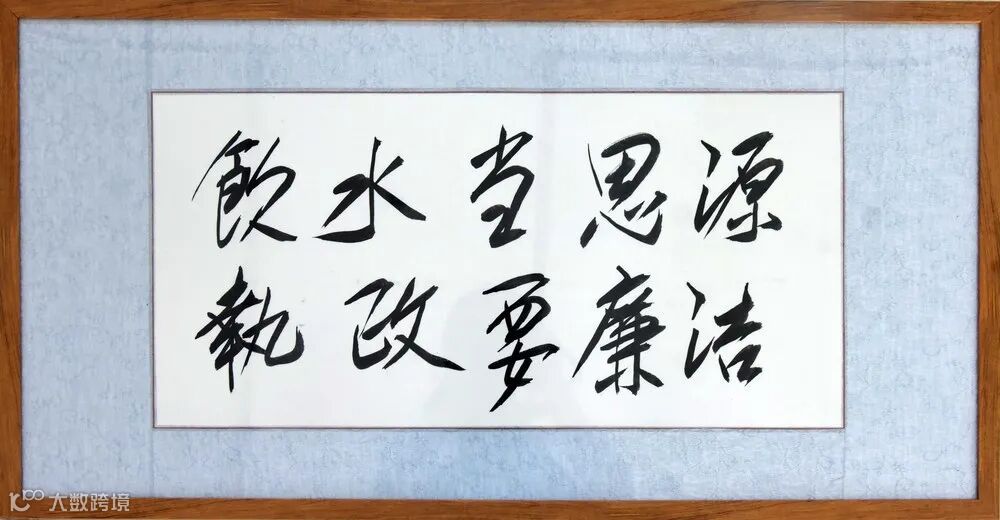 飲水当思源
執政要廉洁
大数跨境